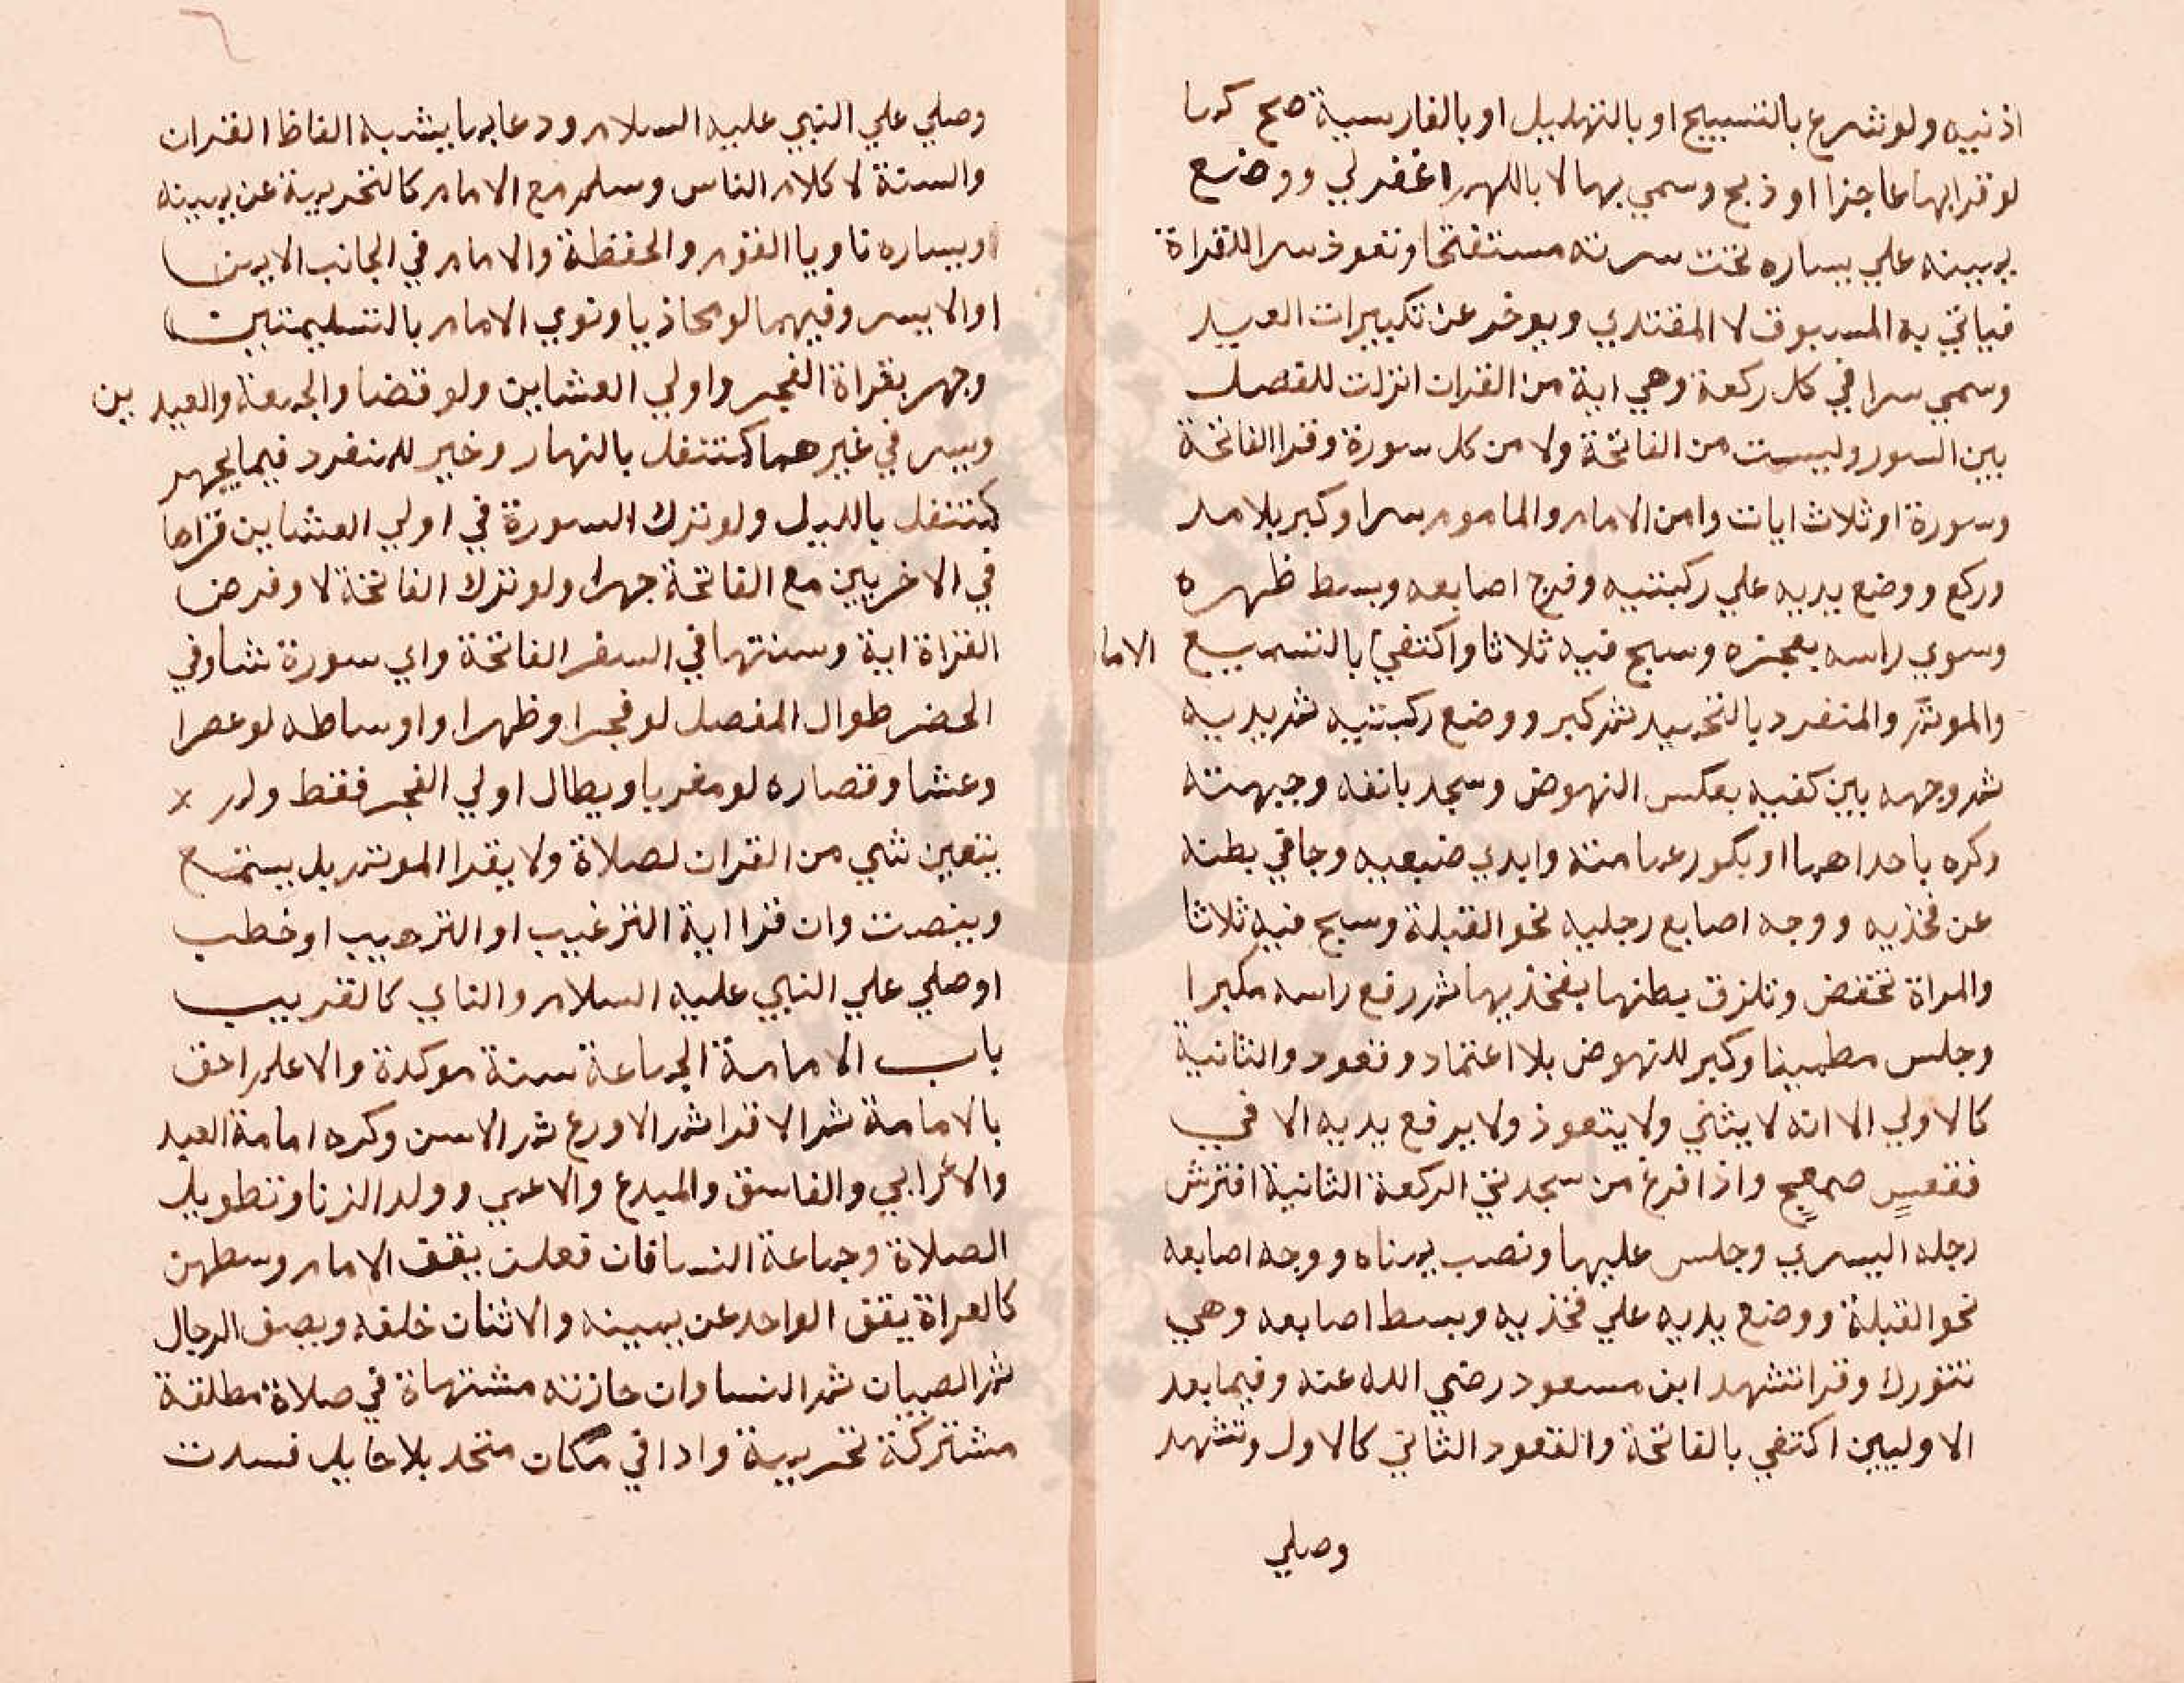 اذنيه ولو شرع بالتسبيح او بالتهليل او بالفارسية صح كما
لو قرا بها عاجزا او ذبح وسمي بها لا باللهم اغفر لي ووضع
يمينه علي يساره تحت سرته مستفتحا وتعوذ سرا للقراة
فياتي به المسبوق لا المقتدي ويوخر عن تكبيرات العيد
وسمي سرا في كل ركعة وهي اية من القران انزلت للفصل
بين السور وليست من الفاتحة ولا من كل سورة وقرا الفاتحة
وسورة او ثلاث ايات وامن الامام والماموم سرا وكبر بلا مد
وركع ووضع يديه علي ركبتيه وفرج اصابعه وبسط ظهره
وسوي راسه بعجزه وسبح فيه ثلاثا واكتفي بالتسميع الاما
والموتم والمنفرد بالتحميد ثم كبر ووضع ركبتيه ثم يديه
ثم وجهه بين كفيه بعكس النهوض وسجد بانفه وجبهته
وكره باحداهما او بكور عمامته وابدي ضبعيه وجافي بطنه
عن فخذيه ووجه اصابع رجليه نحو القبلة وسبح فيه ثلاثا
والمراة تخفض وتلزق بطنها بفخذيها ثم رفع راسه مكبرا
وجلس مطمينا وكبر للنهوض بلا اعتماد وقعود والثانية
كالاولي الا انه لا يثني ولا يتعوذ ولا يرفع يديه الا في
فقعس صمعج واذا فرغ من سجدتي الركعة الثانية افترش
رجله اليسري وجلس عليها ونصب يمناه ووجه اصابعه
نحو القبلة ووضع يديه علي فخذيه وبسط اصابعه وهي
تتورك وقرا تشهد ابن مسعود رضي الله عنه وفيما بعد
الاوليين اكتفي بالفاتحة والقعود الثاني كالاول وتشهد
وصلي
وصلي علي النبي عليه السلام ودعا بما يشبه الفاظ القران
والسنة لا كلام الناس وسلم مع الامام كالتحريمة عن يمينه
ويساره ناويا القوم والحفظة والامام في الجانب الايمن
او الايسر وفيهما لو محاذيا ونوي الامام بالتسليمتين
وجهر بقراة الفجر واولي العشاين ولو قضا والجمعة والعيدين
ويسر في غيرهما كمتنفل بالنهار وخير المنفرد فيما يجهر
كمتنفل بالليل ولو ترك السورة في اولي العشاين قراها
في الاخريين مع الفاتحة جهرا ولو ترك الفاتحة لا وفرض
القراة اية وسنتها في السفر الفاتحة واي سورة شا وفي
الحضر طوال المفصل لو فجرا وظهرا واوساطه لو عصرا
وعشا وقصاره لو مغربا ويطال اولي الفجر فقط ولم
يتعين شي من القران لصلاة ولا يقرا الموتم بل يستمع
وينصت وان قرا اية الترغيب او الترهيب او خطب
او صلي علي النبي عليه السلام والناي كالقريب
باب الامامة الجماعة سنة موكدة والاعلم احق
بالامامة ثم الاقرا ثم الاورع ثم الاسن وكره امامة العبد
والاعرابي والفاسق والمبدع والاعمي وولد الزنا وتطويل
الصلاة وجماعة النسا فان فعلن يقف الامام وسطهن
كالعراة يقف الواحد عن يمينه والاثنان خلفه ويصف الرجال
ثم الصبيان ثم النسا وان حاذته مشتهاة في صلاة مطلقة
مشتركة تحريمة وادا في مكان متحد بلا حايل فسدت